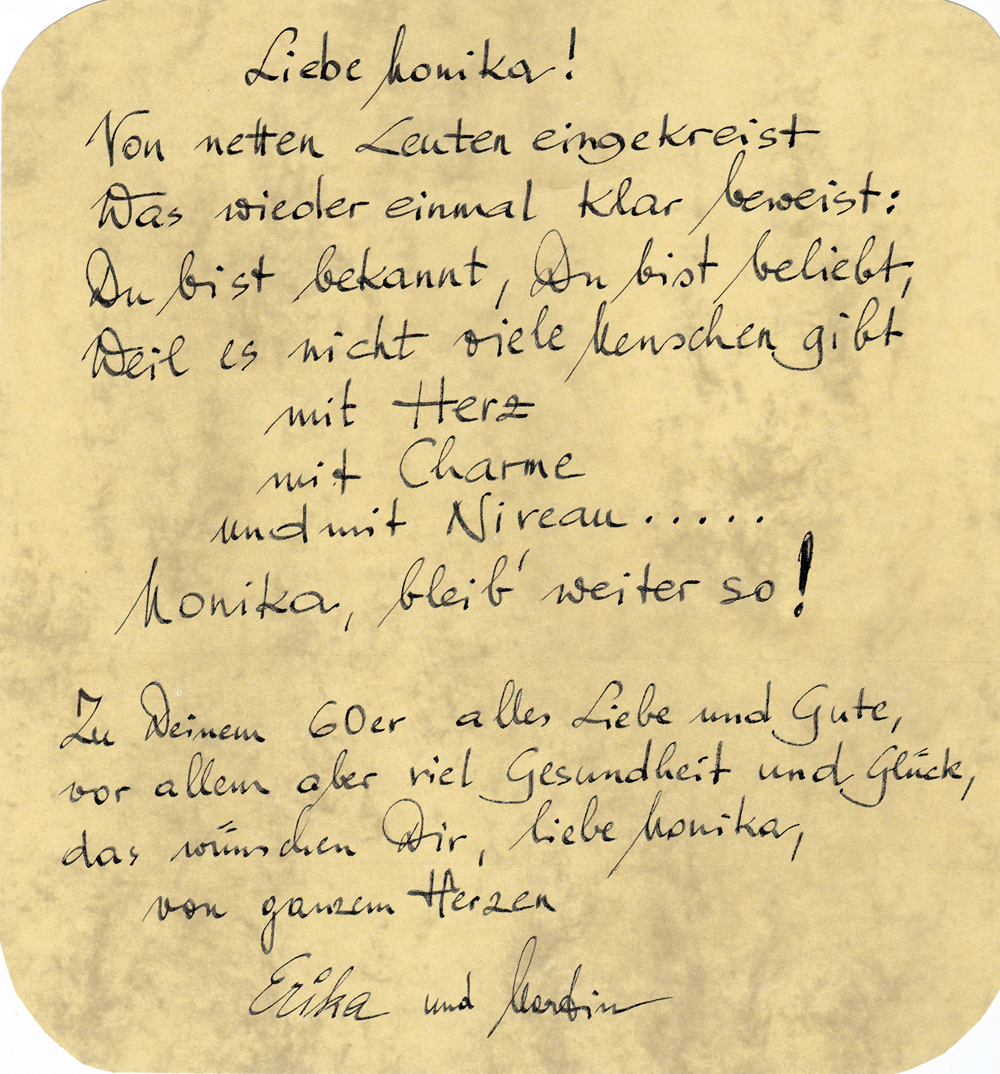 Liebe Monika!
Von netten Leuten eingekreist
Was wieder einmal klar beweist:
Du bist bekannt, Du bist beliebt,
Weil es nicht viele Menschen gibt
mit Herz
mit Charme
und mit Niveau.....
Monika, bleib' weiter so!
Zu Deinem 60er alles Liebe und Gute,
vor allem aber viel Gesundheit und Glück,
das wünschen Dir, liebe Monika,
von ganzem Herzen
Erika und Martin